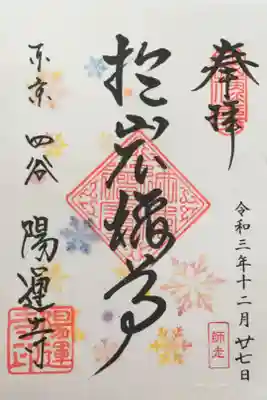 奉拝
令和三年十二月廿七日
師走
於岩稲荷
東京四谷
陽運寺